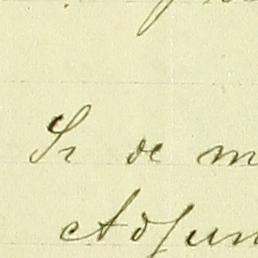 Sr de m
Adjun